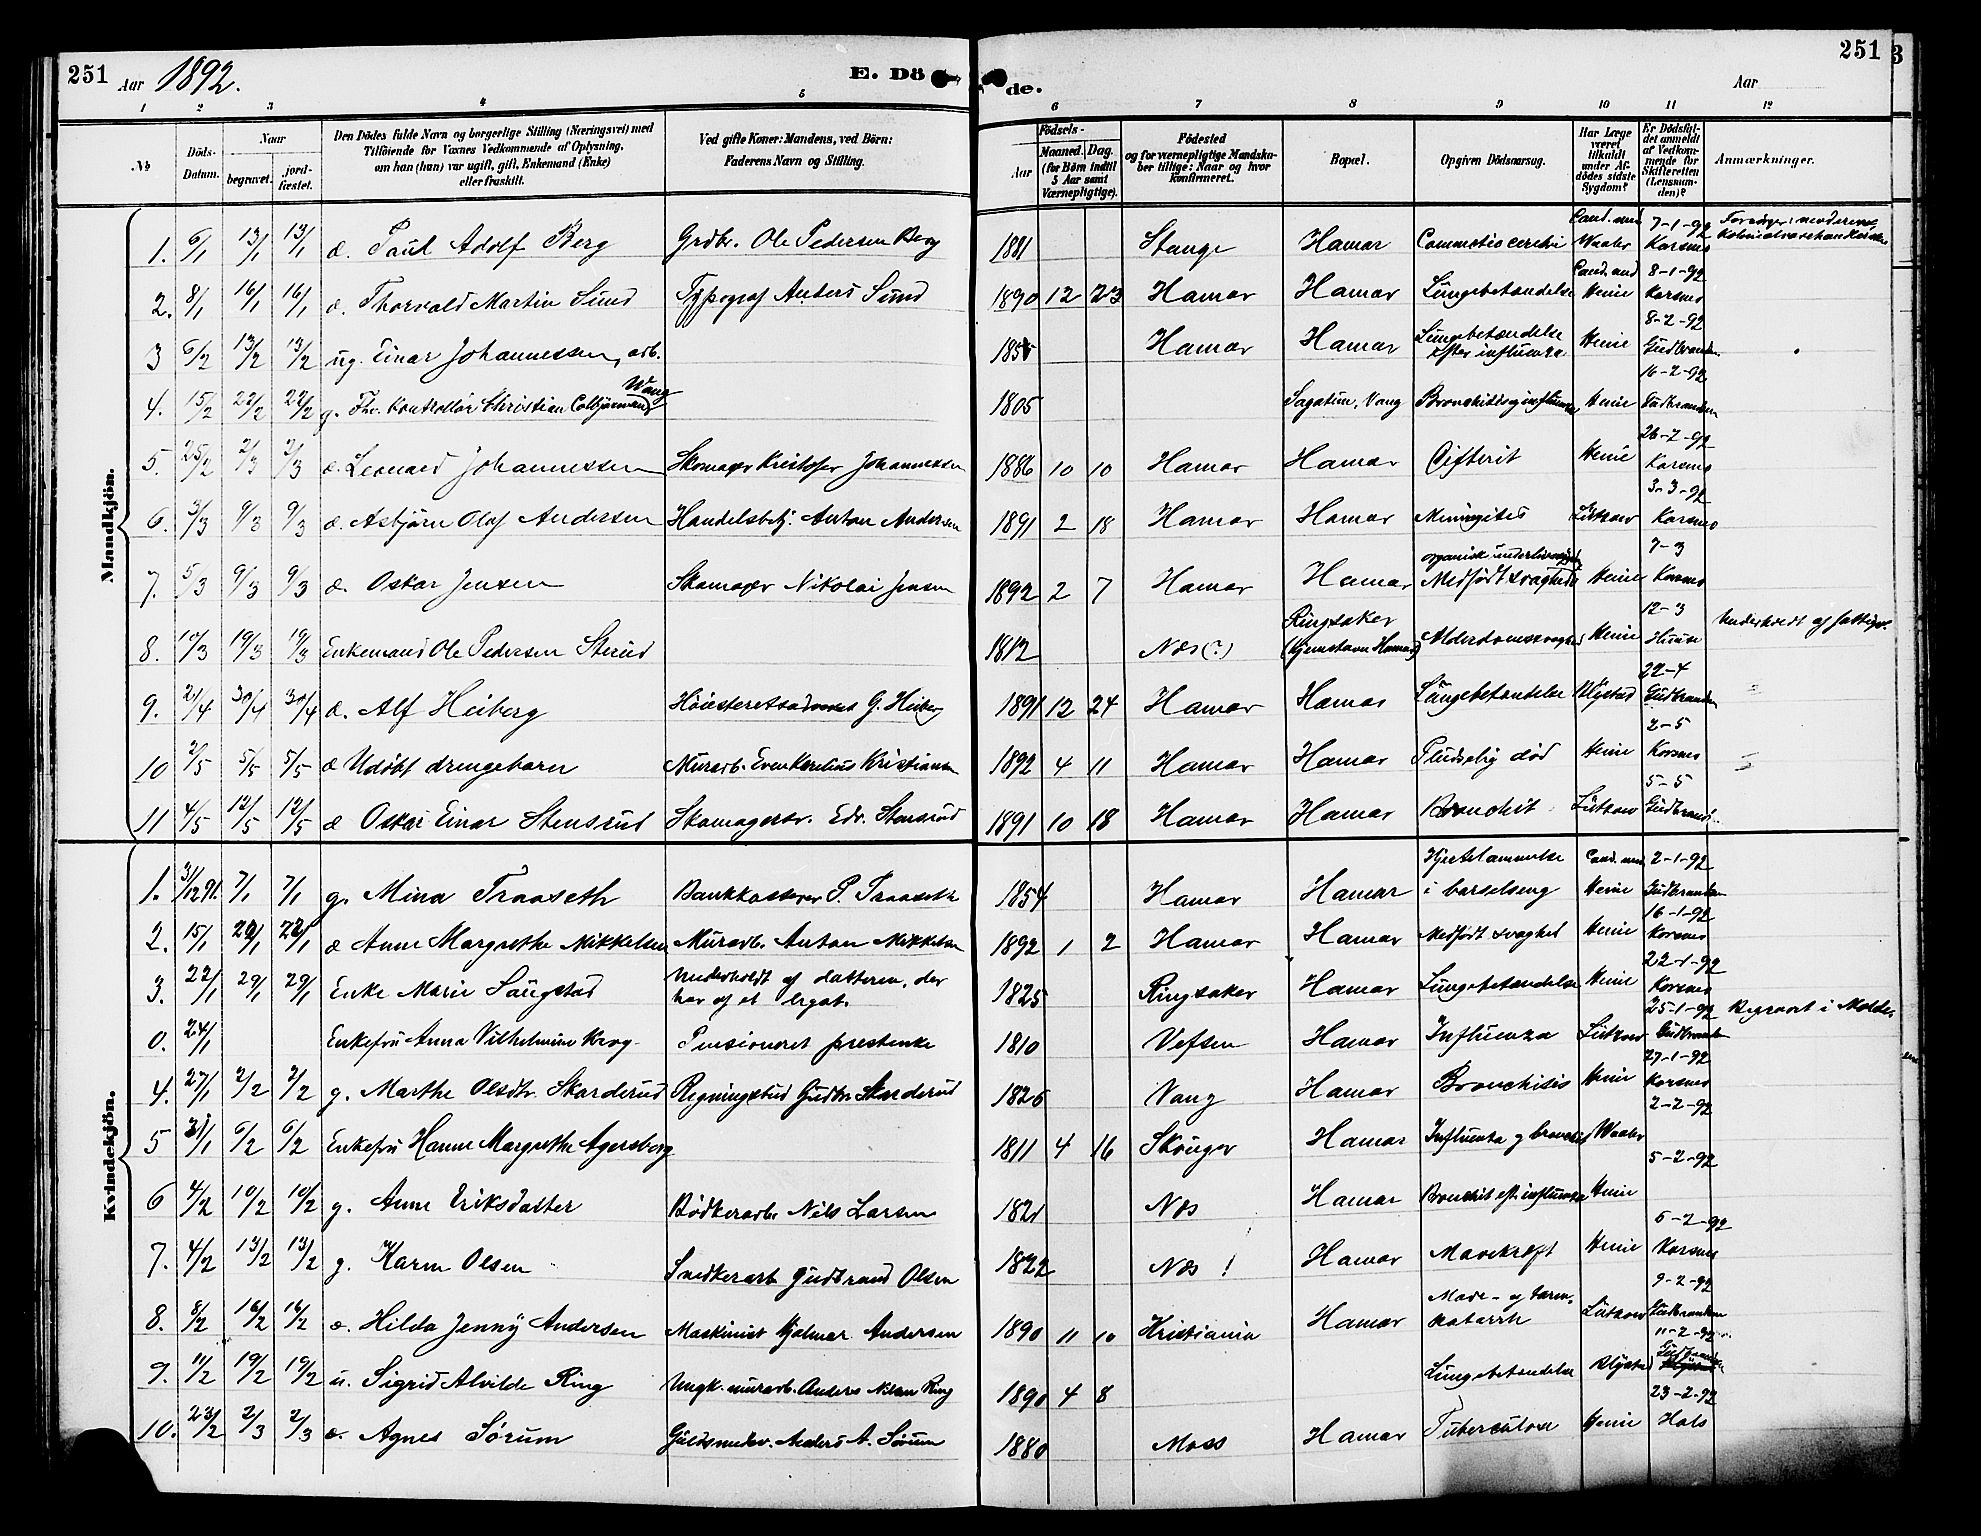 251 Aar 1892. E. Dö de. Aar 251
1 2 3 4 5 6 7 8 9 10 11 12
No
Döds-Datum.
Naar
begravet.
jord-fæstet.
Den Dödes fulde Navn og borgerlige Stilling (Næringsvei) med
Tilföiende for Voxnes Vedkommende af Oplysning,
om han (hun) var ugift, gift, Enkemand (Enke)
eller fraskilt.
Ved gifte Koner: Mandens, ved Börn:
Faderens Navn og Stilling.
Födsels-
Aar
Maaned. Dag.
(for Börn indtil
5 Aar samt
Værnepligtige).
Födested
og for værnepligtige Mandska-
ber tillige: Naar og hvor
konfirmeret.
Bopæl.
Opgiven Dödsaarsag.
Har Læge
været
tilkaldt
under Af-
dödes sidste
Sygdom?
Er Dödsfal-
det anmeldt
af Vedkom-
mende for
Skifteretten
(Lensman-
den)?
Anmærkninger.
Mandkjön.
1. 6/1 13/1 13/1 æ. Paul Adolf Berg Grdbr. Ole Pedersen Berg 1881 Stange Hamar Commotio cerebri Cand. med Waaler 7-1-92 Korsmo
2. 8/1 16/1 16/1 æ. Thorvald Martin Sund Typograf Anders Sund 1890 12 23 Hamar Hamar Lungebetændelse Cand. med Heine 8-1-92 Korsmo
3 6/2 13/2 13/2 ug. Einar Johannessen, arb. Hamar Hamar Lungebetændelse efter influenza. Heine 8-2-92 Gudbrandsen
4. 15/2 22/2 22/2 g. Fhv. Kontrollör Christian Colbjørnsen Wang 1805 Sagatun, Vang Bronchitis og influenza Heine 16-2-92 Gudbrandsen
5. 25/2 2/3 2/3 æ. Leonard Johannessen Skomager Kristofer Johannessen 1886 10 10 Hamar Hamar Difterit Heine 26-2-92 Korsmo
6. 3/3 9/3 9/3 æ. Asbjörn Olaf Andersen Handelsbetj. Anton Andersen 1891 2 18 Hamar Hamar Meningites Lützow 3-3-92 Korsmo
7. 5/3 9/3 9/3 æ. Oskar Jensen Skomager Nikolai Jensen 1892 2 7 Hamar Hamar Medfödt svaghed Heine 7-3 Korsmo
8. 10/3 19/3 19/3 Enkemand Ole Pedersen Sterud 1812 Næs (?) Ringsaker (hjemstavn Hamar) Alderdomssvaghed Heine 12-3 Underholdt af fattigv.
9. 21/4 30/4 30/4 æ. Alf Heiberg Höiesteretsadvokat G. Heiberg 1891 12 24 Hamar Hamar Lungebetændelse Blystad 22-4 Gudbrandsen
10 2/5 5/5 5/5 æ Udöbt drengebarn Murarb. Even Kornelius Kristiansen 1892 4 11 Hamar Hamar Pludselig död Heine 2-5 Korsmo
11 4/5 12/5 12/5 æ Oskar Einar Stensrud Skomagersv. Edv. Stensrud 1891 10 18 Hamar Hamar Bronchit Lützow 5-5 Gudbrands.
Kvindekjön.
1. 31/12 91. 7/1 7/1 g. Mina Traaseth Bankkasserer P. Traaseth 1854 Hamar Hamar Hjertelammelse i barselseng Cand. med. Heine 2-1-92 Gudbrandsen
2. 15/1 22/1 22/1 æ Anne Margrethe Mikkelsen Murarb. Anton Mikkelsen 1892 1 2 Hamar Hamar Medfödt svaghet Heine 16-1-92 Korsmo
3. 22/1 29/1 29/1 Enke Marie Saugstad Underholdt af datteren, der har af et legat. 1825 Ringsaker Hamar Lungebetændelse Heine 22-1-92 Korsmo
0. 24/1 Enkefru Anna Vilhelmine Krog Pensioneret prestenke 1810 Vefsen Hamar Influenza Lützow 25-1-92 Gudbrandsen Begravet i Molde
4. 27/1 2/2 2/2 g. Marthe Olsdtr. Skarderud Regningsbud Gudbr. Skarderud 1826 Vang Hamar Bronchitis Heine 27-1-92 Korsmo
5 31/1 6/2 6/2 Enkefru Hanne Margrethe Agersborg 1811 4 16 Skouger Hamar Influenza og bronchit Waaler 2-2-92
6 4/2 10/2 10/2 g. Anne Eriksdatter Bödkerarb. Nils Larsen 1821 Næs Hamar Bronchit eft. influenza Heine 5-2-92
7. 4/2 13/2 13/2 g. Karen Olsen Snedkerarb. Gudbrand Olsen 1822 Næs ! Hamar Mavekræft Heine 6-2-92 Korsmo
8. 8/2 16/2 16/2 æ. Hilda Jenny Andersen Maskinist Hjalmar Andersen 1890 11 10 Kristiania Hamar Mave- og tarmkatarrh Lützow 9-2-92 Gudbrandsen
9. 11/2 19/2 19/2 u. Sigrid Alvilde Ring Ungk. murarb. Anders Nilsen Ring 1890 4 8 Lungebetændelse Blystad 11-2-92 Gudbrandsen
10. 23/2 2/3 2/3 æ. Agnes Sörum Guldsmedsv. Anders A. Sörum 1880 Moss Hamar Tuberculose Heine 23-2-92 Hals